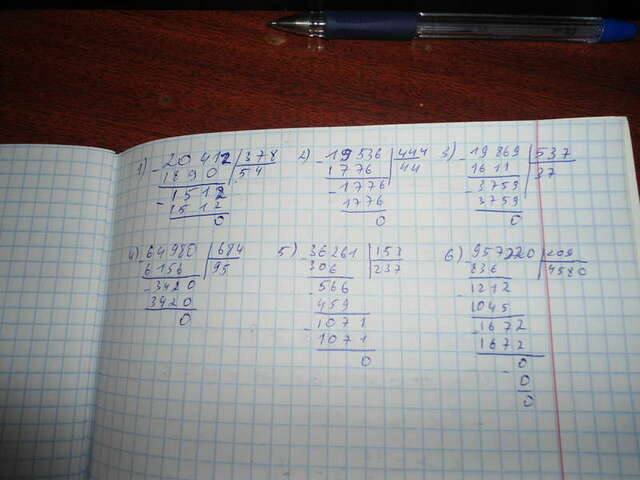 1) -20412 | 378
1890 | 54
-1512
1512
0
2) -19536 | 444
1776 | 44
-1776
1776
0
3) -19869 | 537
1611 | 37
-3759
3759
0
4) -64980 | 684
6156 | 95
-3420
3420
0
5) -36261 | 153
306 | 237
-566
459
-1071
1071
0
6) -957220 | 209
836 | 4580
-1212
1045
-1672
1672
0
-0
0